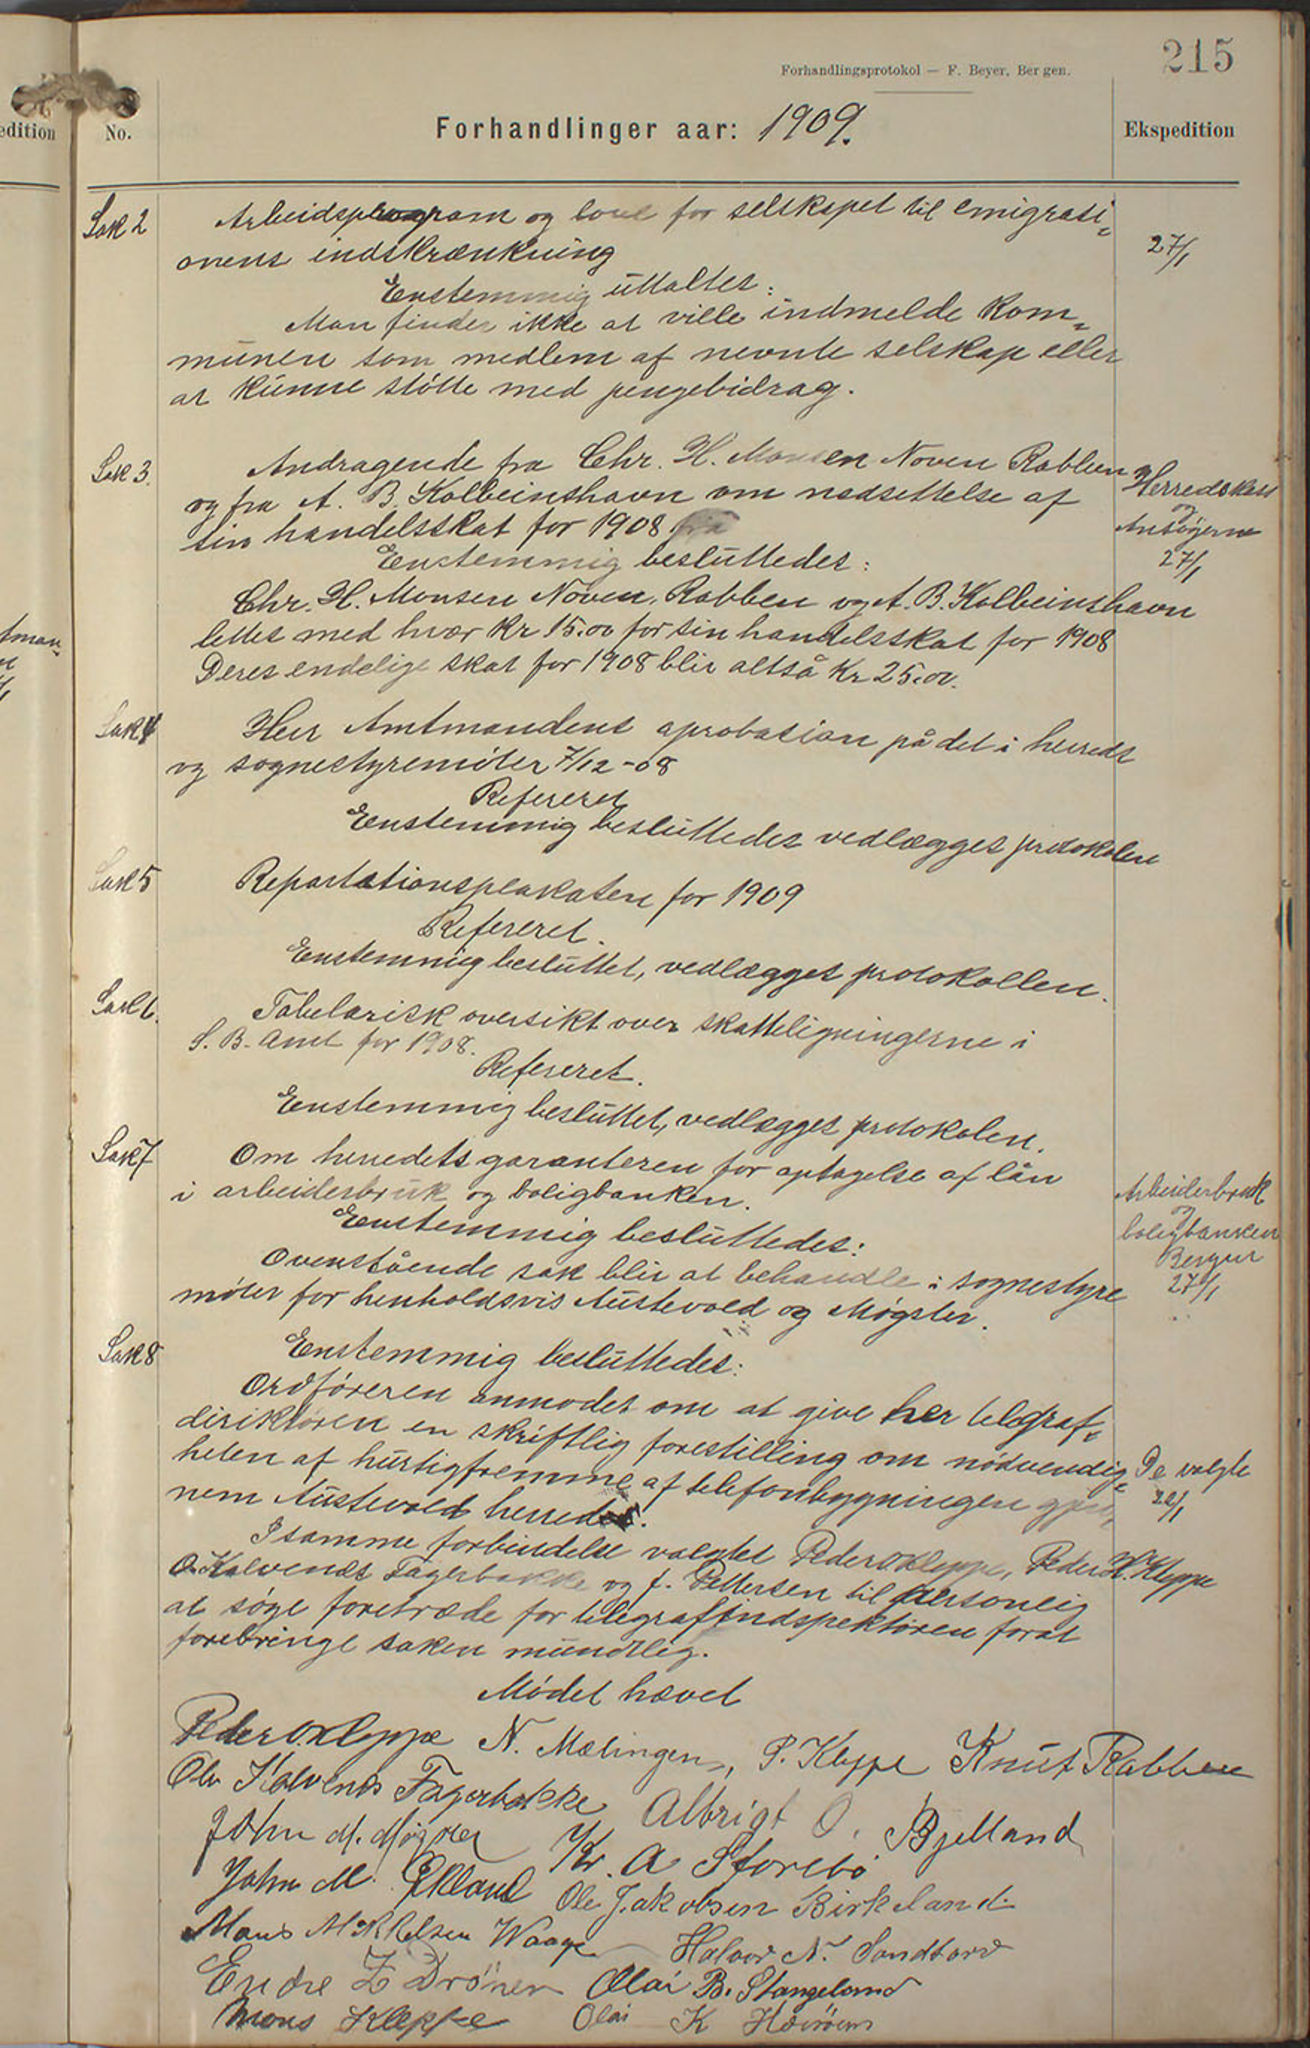 215
Forhandlingsprotokol — F. Beyer, Bergen.
edition
No.
Forhandlinger aar: 1909.
Ekspedition
Sak 2
Arbeidsprogram og love for selskapet til emigrati-
onens indskrænkning
27/1
Enstemmig uttaltes:
Man finder ikke at ville indmelde kom-
munen som medlem af nevnte selskap eller
at kunne støtte med pengebidrag.
Sak 3.
Andragende fra Chr. H. Monsen Noven Rabben
og fra A. B. Kolbeinshavn om nedsettelse af
sin handelsskat for 1908
Herredskass
og
Ansøgerne
27/1
Enstemmig besluttedes:
Chr. H. Monsen Noven, Rabben og A. B. Kolbeinshavn
lettes med hvær kr 15.00 for sin handelsskat for 1908
Deres endelige skat for 1908 blir altså Kr 25.00.
Sak 4
Herr Amtmandens aprobasion på det i herreds
og sognestyremøter 7/12-08
Refereret
Enstemmig besluttedes vedlægges protokolen
Sak 5
Repartationsplakaten for 1909
Refereret.
Enstemmig besluttet, vedlægges protokollen.
Sak 6.
Tabelarisk oversikt over skatteligningerne i
S. B. Amt for 1908.
Refereret.
Enstemmig besluttet, vedlægges protokolen.
Sak 7
Om herredets garanteren for optagelse af lån
i arbeiderbruk og boligbanken.
Arbeiderbruk
og
boligbanken
Bergen
27/1
Enstemmig besluttedes:
Ovenstående sak blir at behandle i sognestyre
møter for henholdsvis Austevold og Møgster.
Sak 8
Enstemmig besluttedes:
Ordføreren anmodes om at give her telegraf-
direktøren en skriftlig forestilling om nødvendig-
heten af hurtigfremme af telefonbygningen gjen-
nem Austevold herred.
De valgte
I samme forbindelse valgtes Peder O Kleppe, Peder H. Kleppe
O. Kalvenes Fagerbakke og J. Pettersen til personlig
at søge foretræde for telegrafindspektøren forat
forebringe saken mundtlig.
Mødet hævet
Peder O. Kleppe N. Mælingen, P. Kleppe Knut Rabben
Ole Kalvenes Fagerbakke Albrigt O. Bjelland
John M. Møgster Kr. A Storebø
John M. Økland Ole Jakobsen Birkeland
Mons Mikkelsen Waage Halvor N. Sandtorv
Endre Z Drønen Olai B. Stangeland
Mons Kleppe Olai K